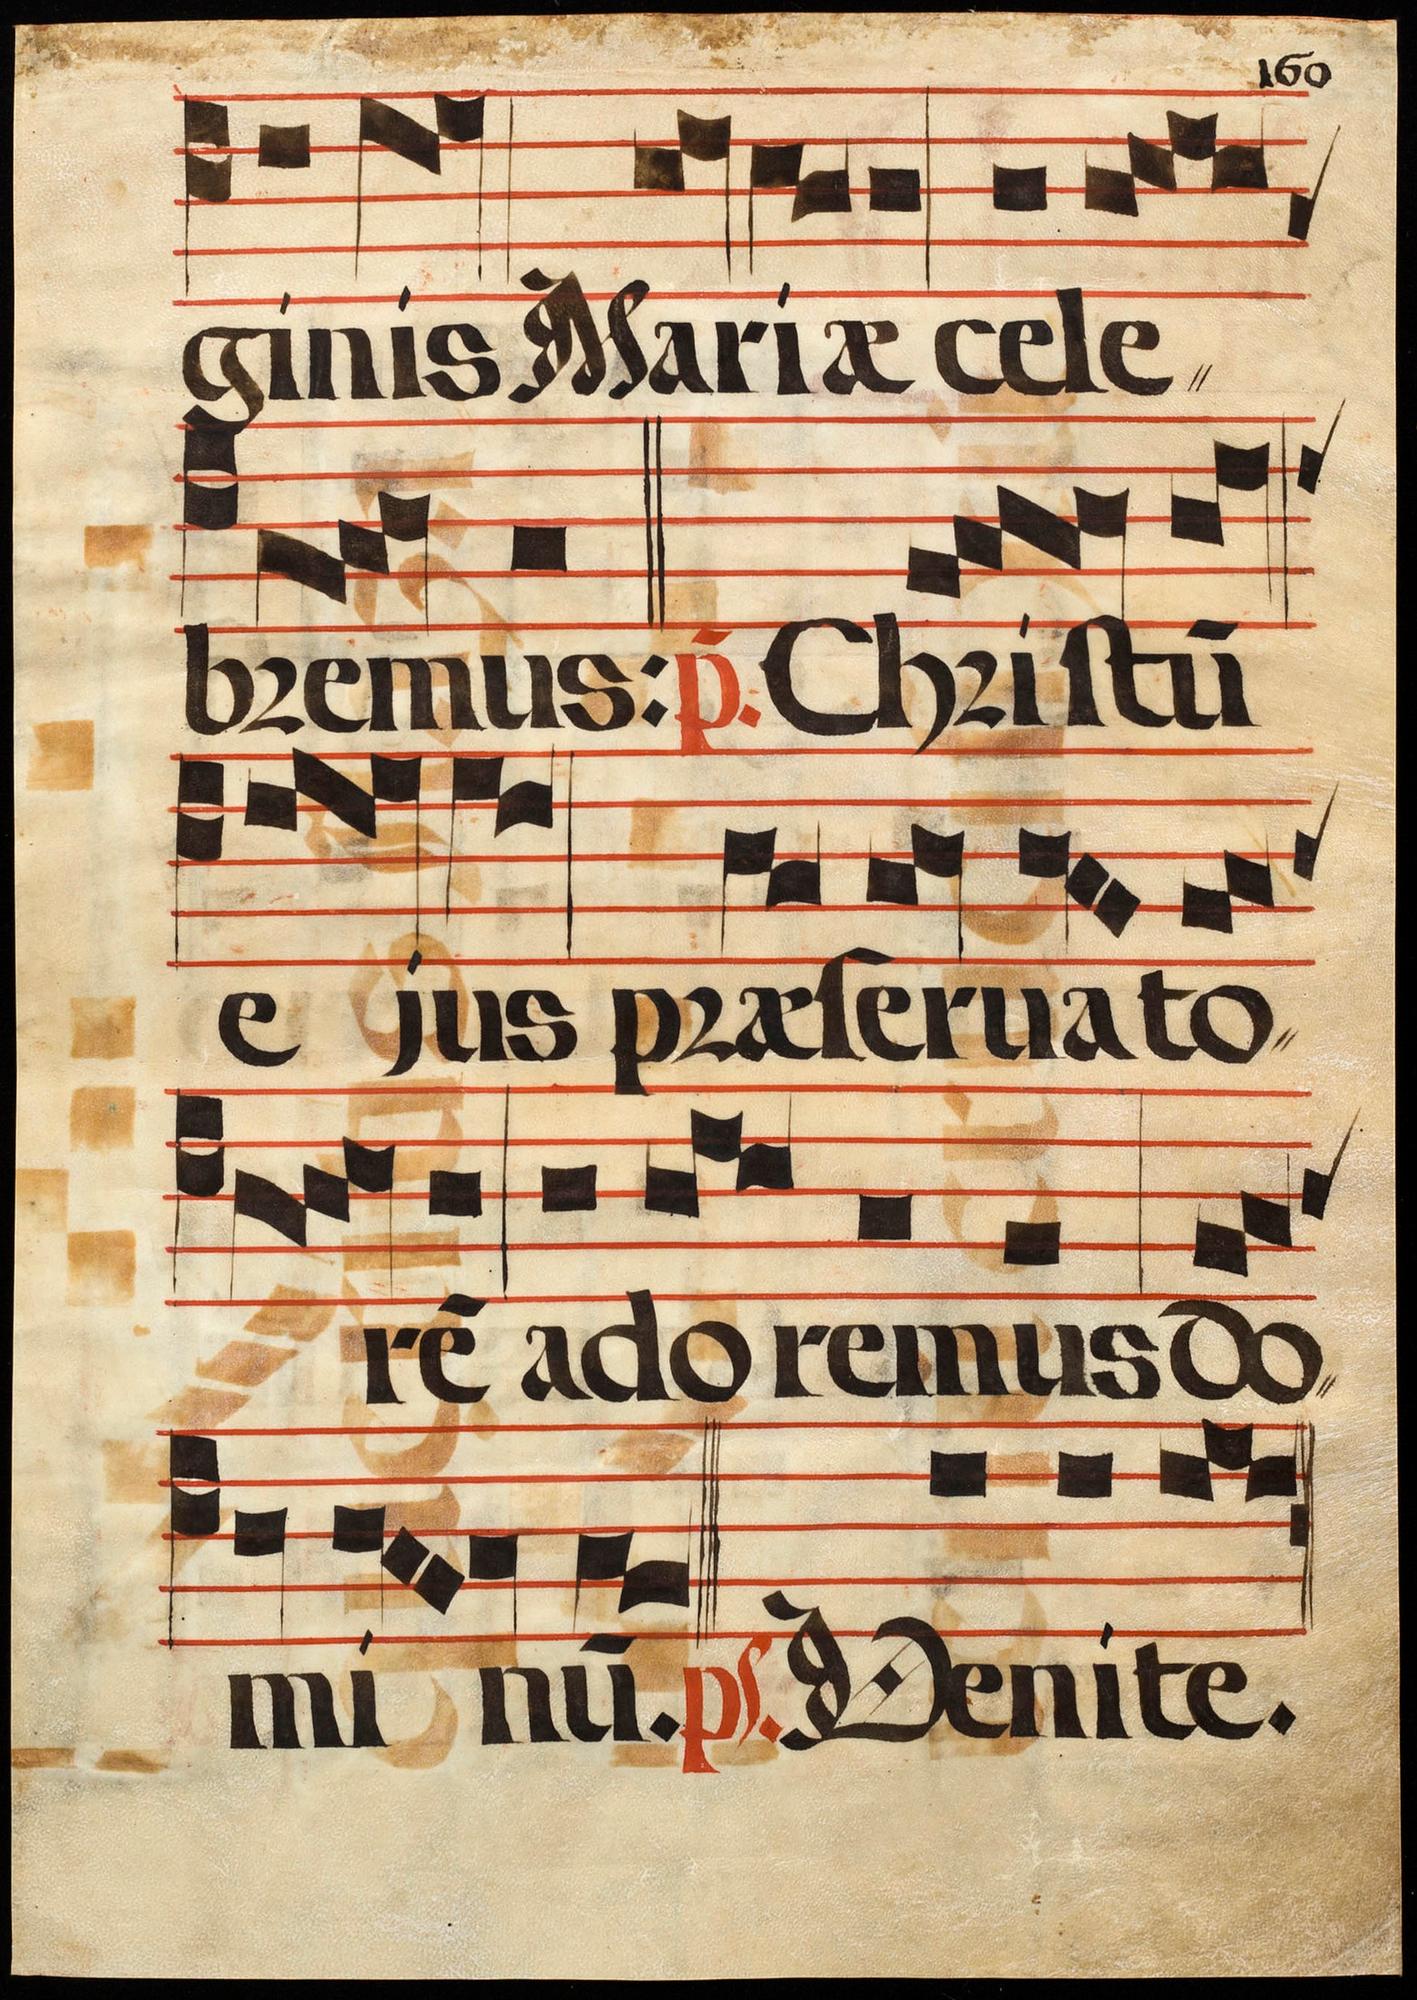 160
ginis Mariæ cele〃
bremus: p̄. Chriſtū
e jus præſerua to〃
rē ado remus do〃
mi nū. pſ. Venite.